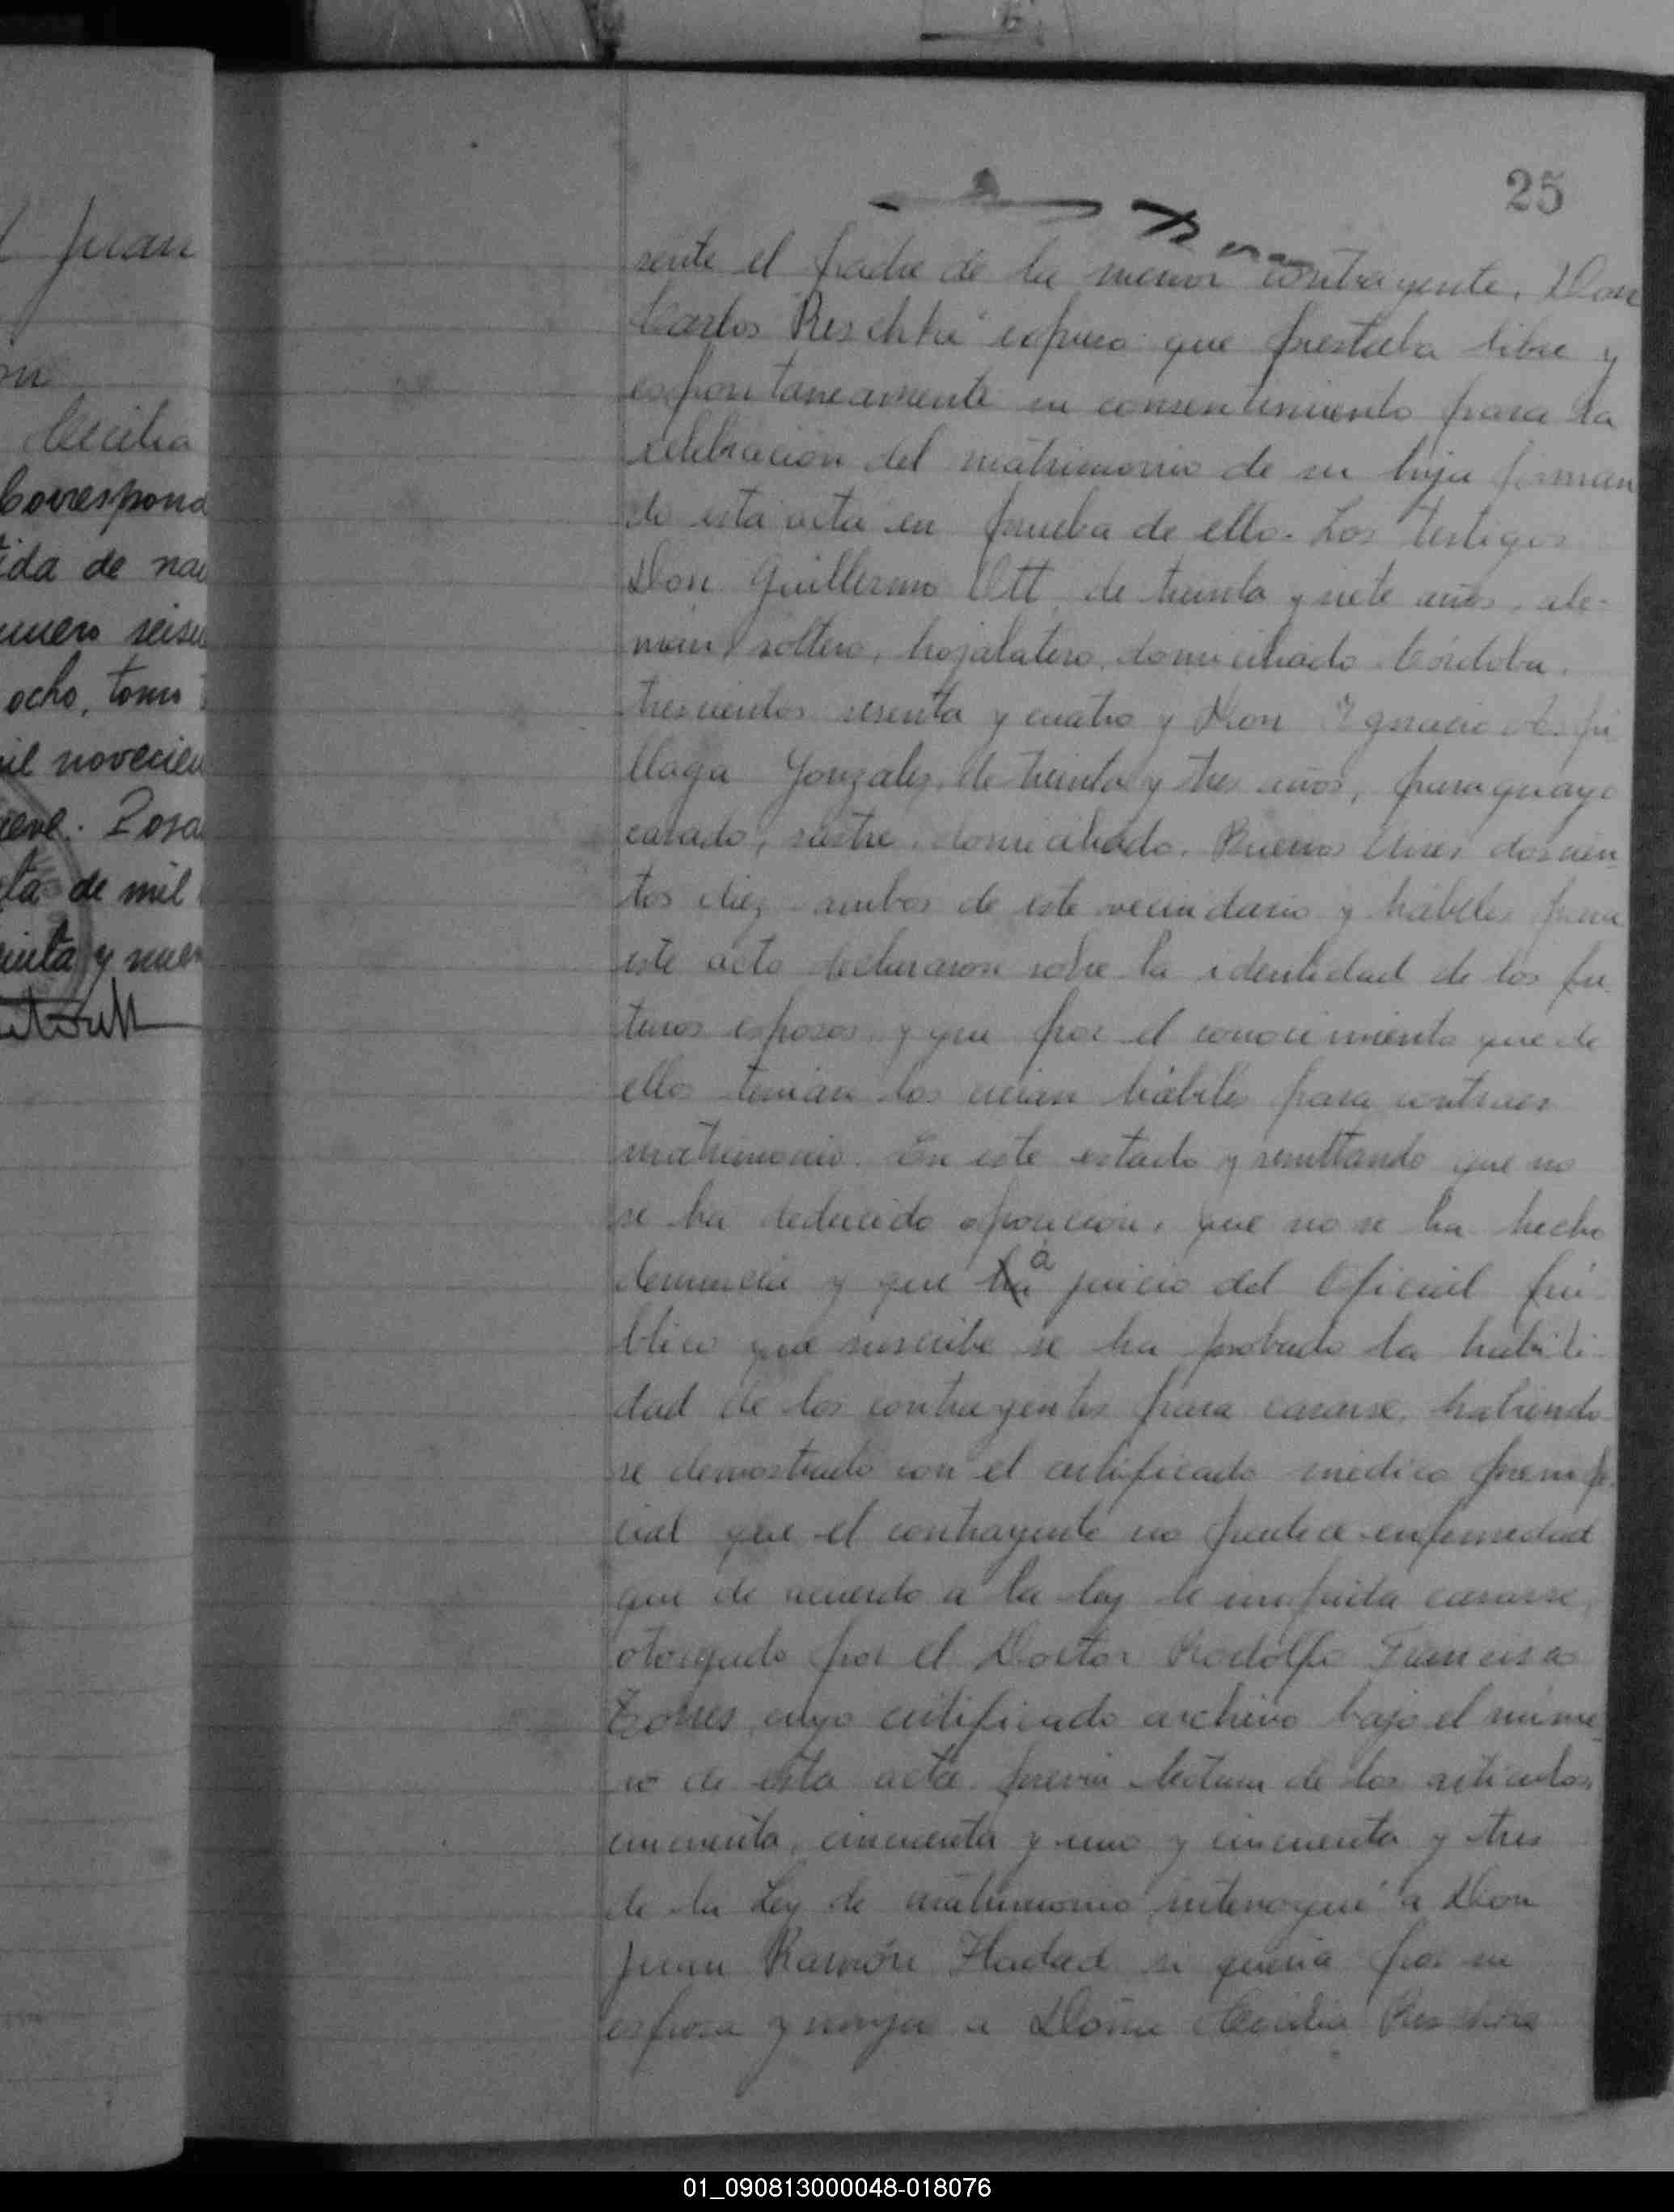 Juan
Cecilia
Correspond
ida de nac
ocho, tomo
il novecien
ta de mil
y nuev
25
sente el padre de la menor contrayente, Don
Carlos Reschke expuso que prestaba libre y
espontaneamente su consentimiento para la
celebración del matrimonio de su hija firman
do esta acta en prueba de ello. Los testigos
Don Guillermo Ott, de treinta y siete años, ale-
mán, soltero, hojalatero, domiciliado Córdoba
trescientos sesenta y cuatro y Don Ignacio
llaga Gonzalez, de treinta y tres años, paraguayo
casado, sastre, domiciliado, Buenos Aires doscien
tos diez ambos de este vecindario y hábiles para
este acto declararon sobre la identidad de los fu
turos esposos y que por el conocimiento que de
ellos tenian los creian hábiles para contraer
matrimonio. En este estado y resultando que no
se ha deducido oposición, que no se ha hecho
denuncia y que a juicio del Oficial pú-
blico que suscribe se ha probado la habili-
dad de los contrayentes para casarse, habiendo
se demostrado con el certificado médico prenup
cial que el contrayente no padece enfermedad
que de acuerdo a la ley le impida casarse,
otorgado por el Doctor Rodolfo Francisco
Torres, cuyo certificado archivo bajo el núme
ro de esta acta previa lectura de los articulos
cincuenta, cincuenta y uno y cincuenta y tres
de la Ley de matrimonio interrogué a Don
Juan Ramón Hadad si queria por su
esposa y mujer a Doña Cecilia Reschke
01_090813000048-018076